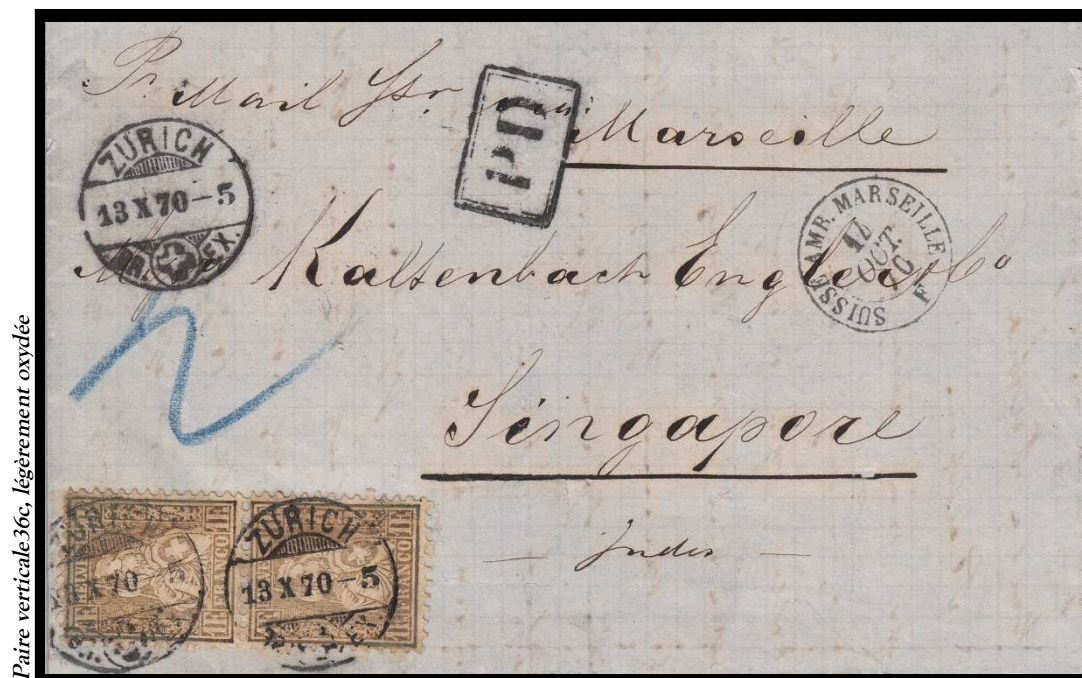 Paire verticale 36c, légèrement oxydée
Pr. Mail Str via Marseille
PD
ZÜRICH
13 X 70 – 5
EX.
SUISSE AMB. MARSEILLE F
14
OCT.
70
Kaltenbach Engler & Co
Singapore
— Indes —
2
ZÜRICH
13 X 70 – 5
EX.
ZÜRICH
13 X 70 – 5
EX.
FRANCO
FRANCO